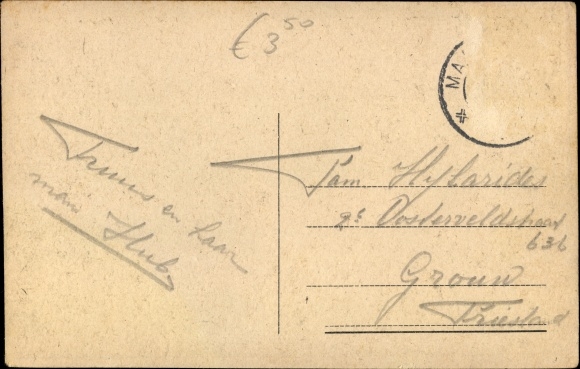 € 3 50
MA
Truus en haar
man Huib
Fam Hylarides
2e Oosterveldstraat
636
Grouw
Friesland